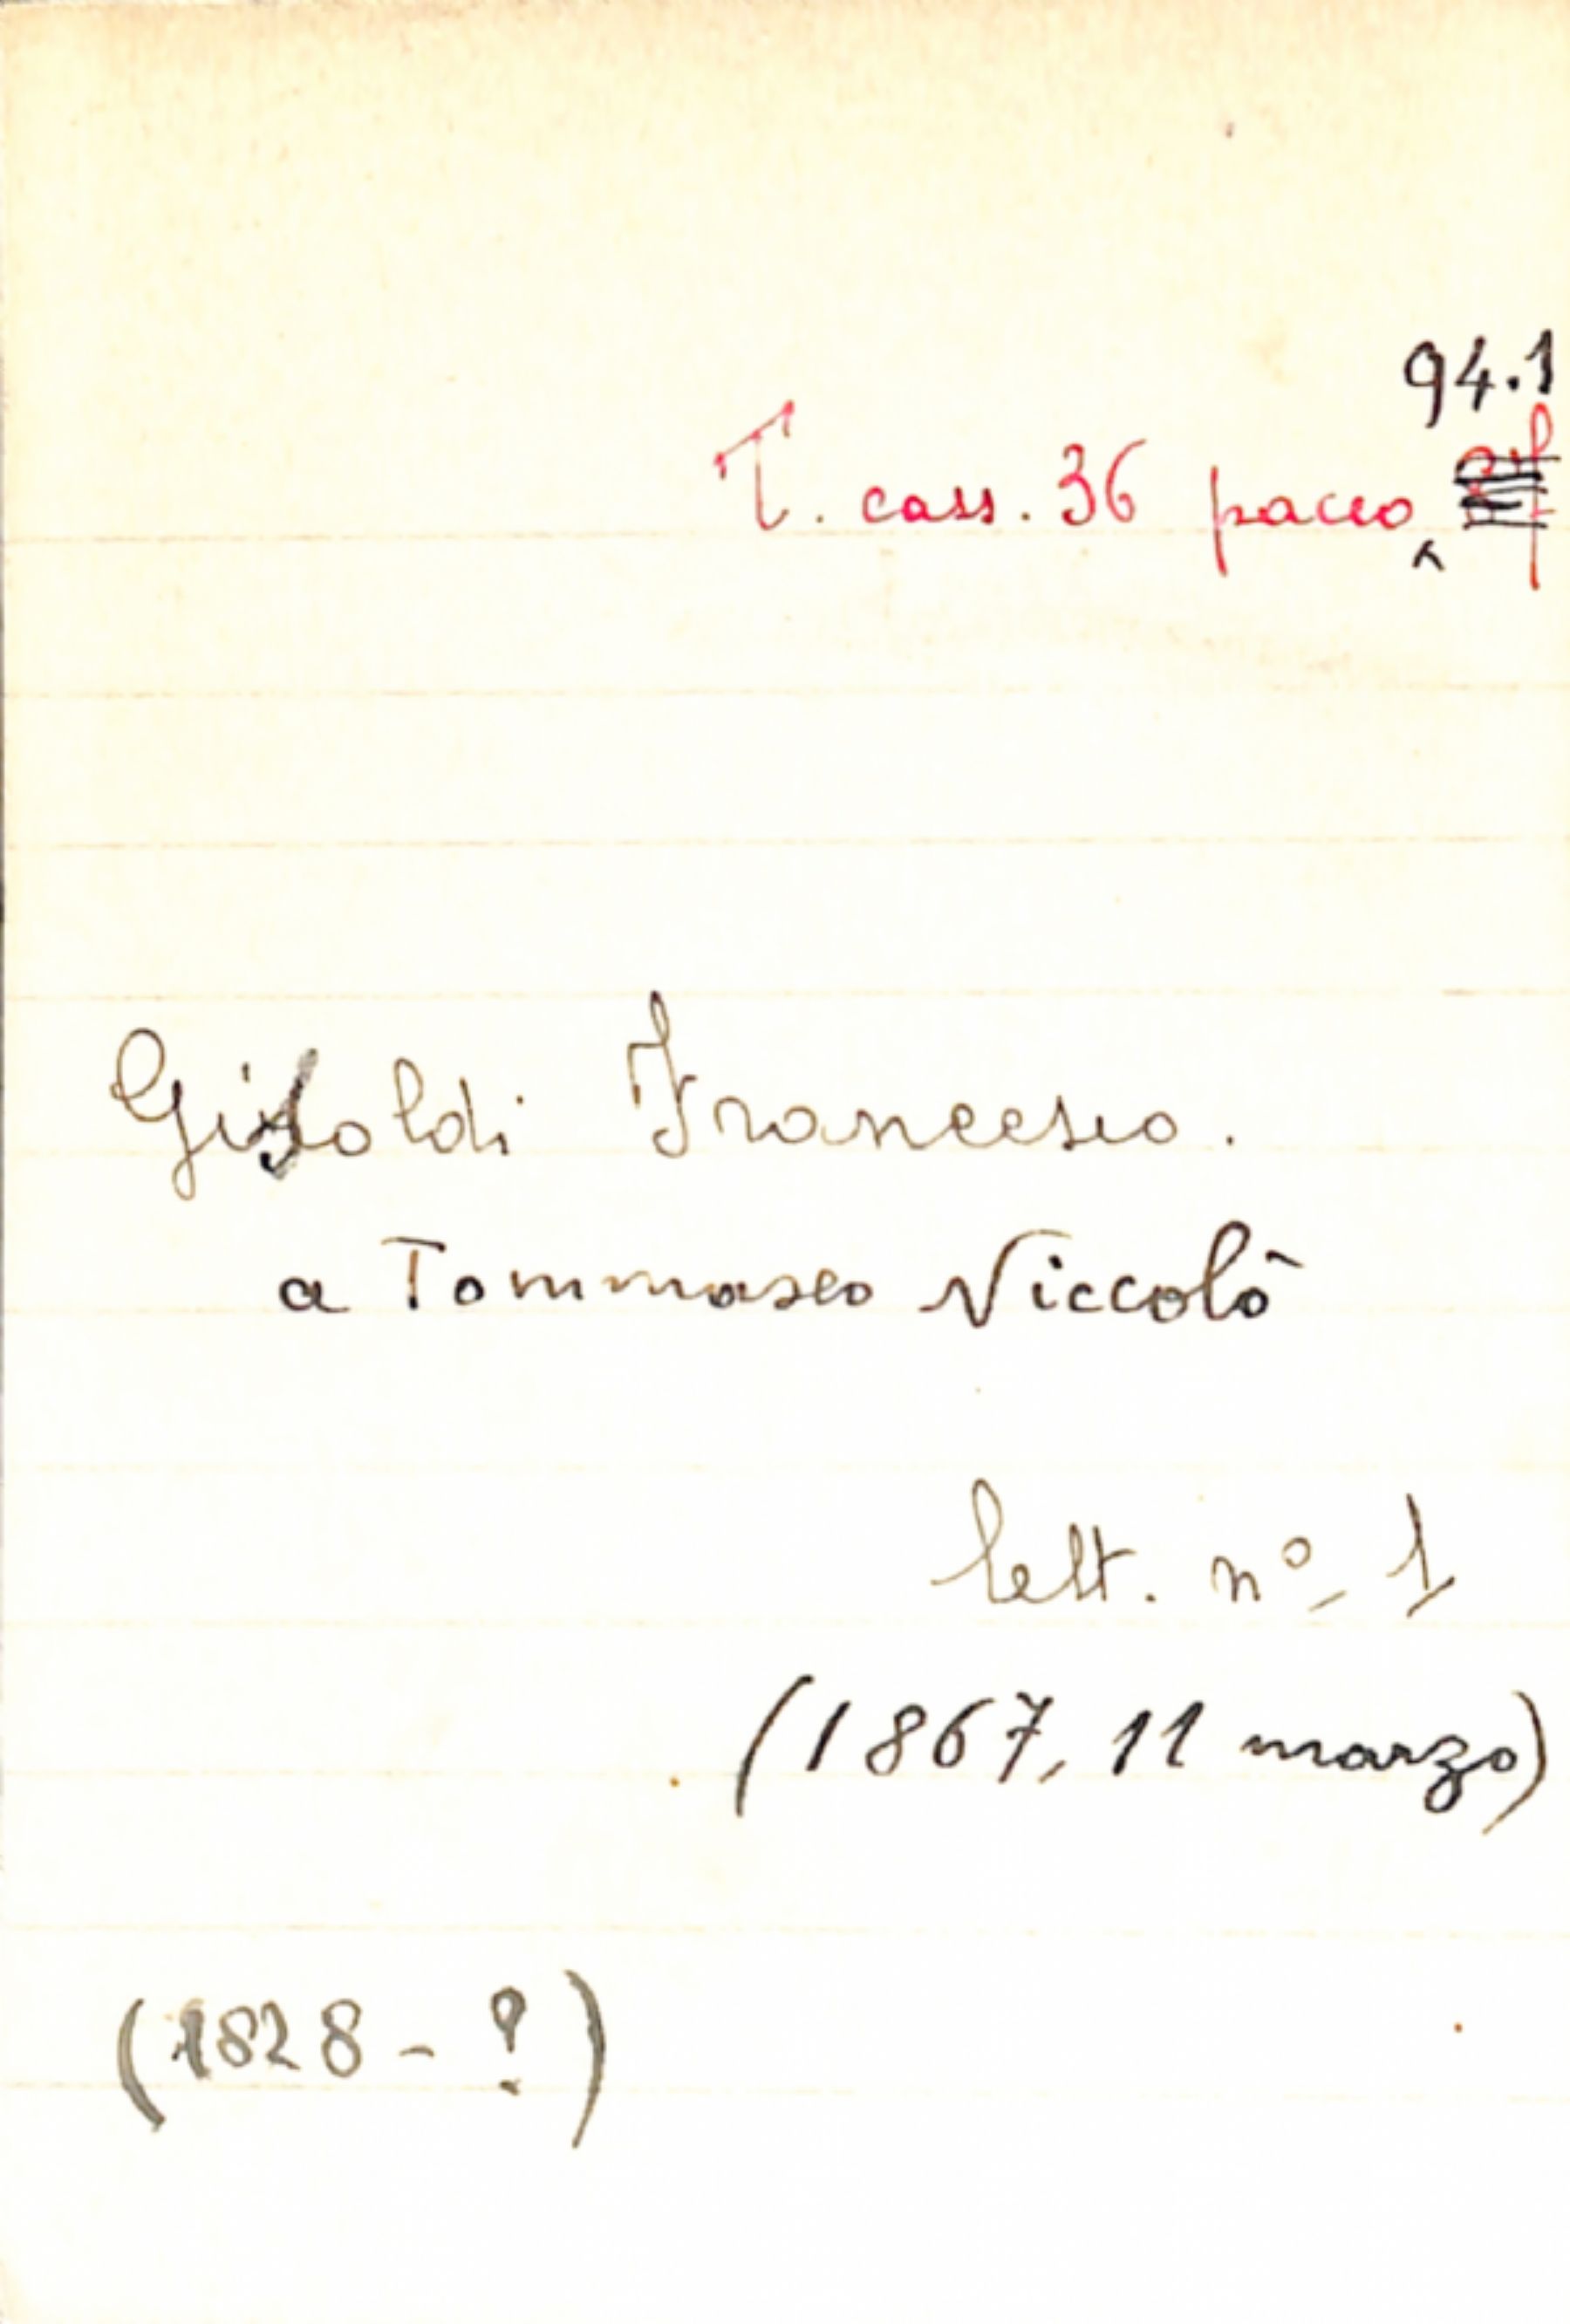 94.1
T. cass. 36 pacco
Gisoldi Francesco.
a Tommaseo Niccolò
lett. nº 1
(1867, 11 marzo)
(1828 - ?)